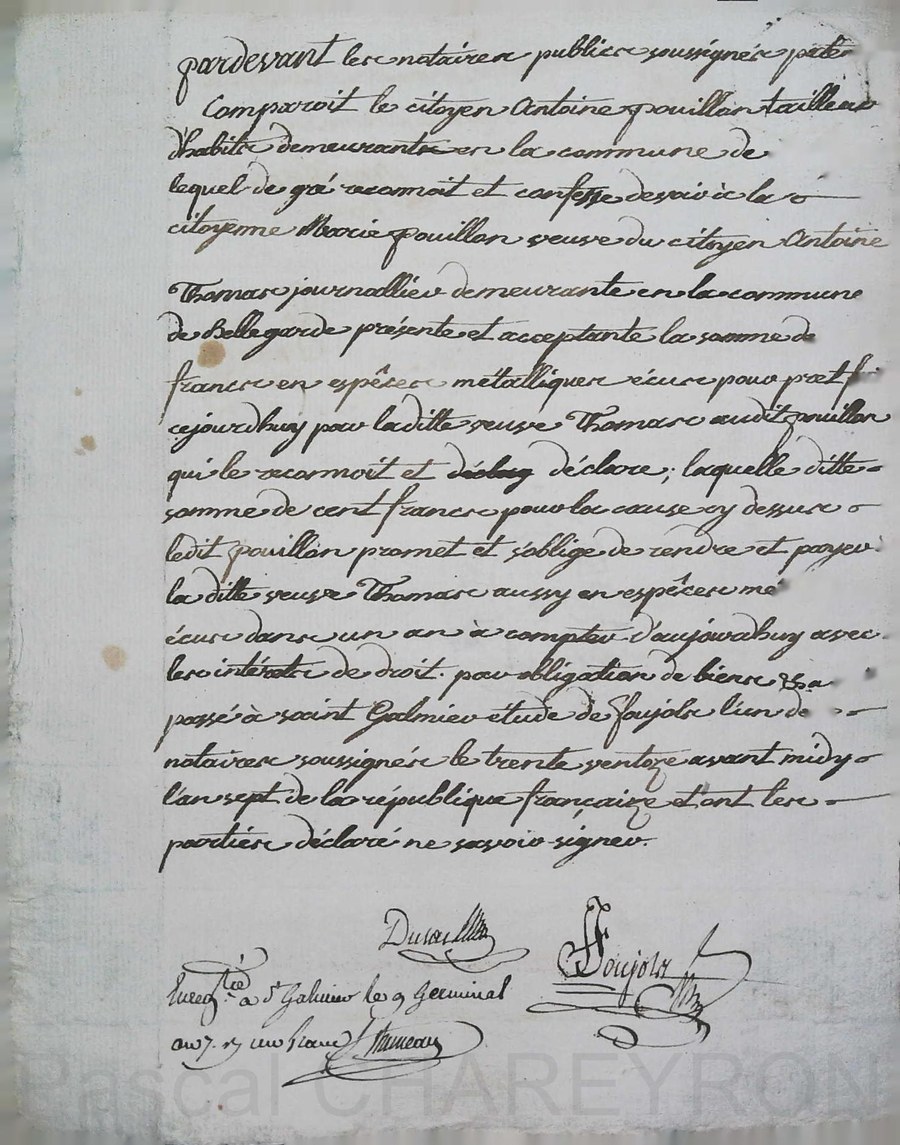 pardevant les notaires publics soussignés
Comparoit le citoyen Antoine pouillon tailleur
d'habits demeurants en la commune de
lequel de gré reconnoit et confesse devoir à la
citoyenne Marie pouillon veuve du citoyen Antoine
Thomas journallier demeurante en la commune
de Bellegarde présente et acceptante la somme de
francs en espêces métalliques écus pour pret
cejourdhuy par laditte veuve Thomas audit pouillon
qui le reconnoit et déclare; laquelle ditte
somme de cent francs pour la cause cy dessus
ledit pouillon promet et s'oblige de rendre et payer
la ditte veuve Thomas aussy en espêces mé
écus dans un an à compter d'aujourdhuy avec
les intérêts de droit. par obligation de biens &a
passé à saint Galmier etude de foujols l'un de
notaires soussignés le trente ventoze avant midy
l'an sept de la république françaize et ont les
parties déclaré ne savoir signer.
Foujols
Enregtré a St Galmier le 9 Germinal
an 7. un franc
Pascal CHAREYRON